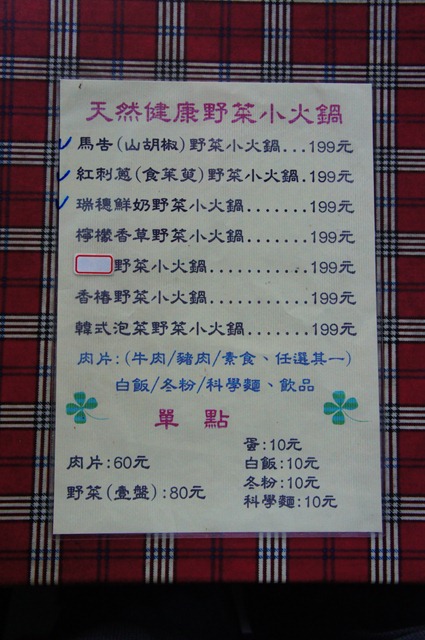 天然健康野菜小火鍋
馬告(山胡椒)野菜小火鍋...199元
紅刺蔥(食茱萸)野菜小火鍋.199元
瑞穗鮮奶野菜小火鍋.......199元
檸檬香草野菜小火鍋.......199元
野菜小火鍋...........199元
香椿野菜小火鍋...........199元
韓式泡菜野菜小火鍋.......199元
肉片:(牛肉/豬肉/素食、任選其一)
白飯/冬粉/科學麵、飲品
單點
肉片:60元
野菜(壹盤):80元
蛋:10元
白飯:10元
冬粉:10元
科學麵:10元